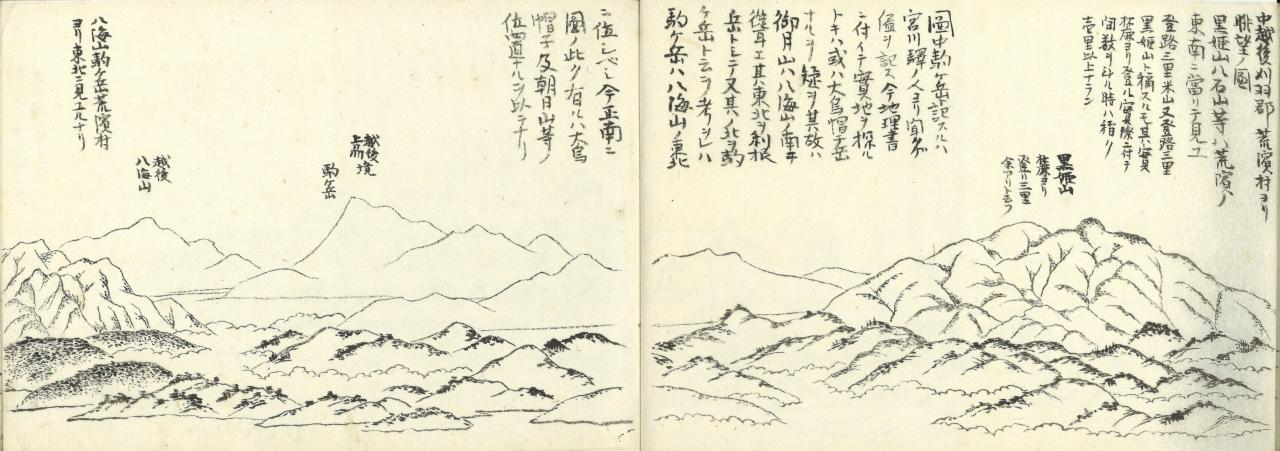 中越後刈羽郡荒濱村ヨリ
眺望ノ圖
黒姫山八石山等ハ荒濱ノ
東南ニ當リテ見ユ
登路三里米山又登路三里
黒姫山ト稱スルモ其ハ實
麓ヨリ登ル實際ニ付テ
間数ヲ斗ル時ハ稍ク
壱里以上ナラン
黒姫山
麓ヨリ
登リ三里
余アリト云フ
圖中駒ケ岳ト記スルハ
宮川驛ノ人ヨリ聞クガ
儘ヲ記ス今地理書
ニ付イテ實地ヲ探ル
トキハ或ハ大烏帽子岳
ナルヲ疑ヲ其故ハ
御月山ハ八海山ノ南ニ
聳エ其東北ヲ利根
岳トシテ又其ノ北ヲ駒
ケ岳ト云フ考フレハ
駒ケ岳ハ八海山ノ東北
ニ位シベシ今正南ニ
圖ノ此ク有ルハ大烏
帽子及朝日山等ノ
位置ナルヲ以テナリ
越後
上州境
駒ケ岳
越後
八海山
八海山駒ケ岳荒濱村
ヨリ東北ニ見ユルナリ